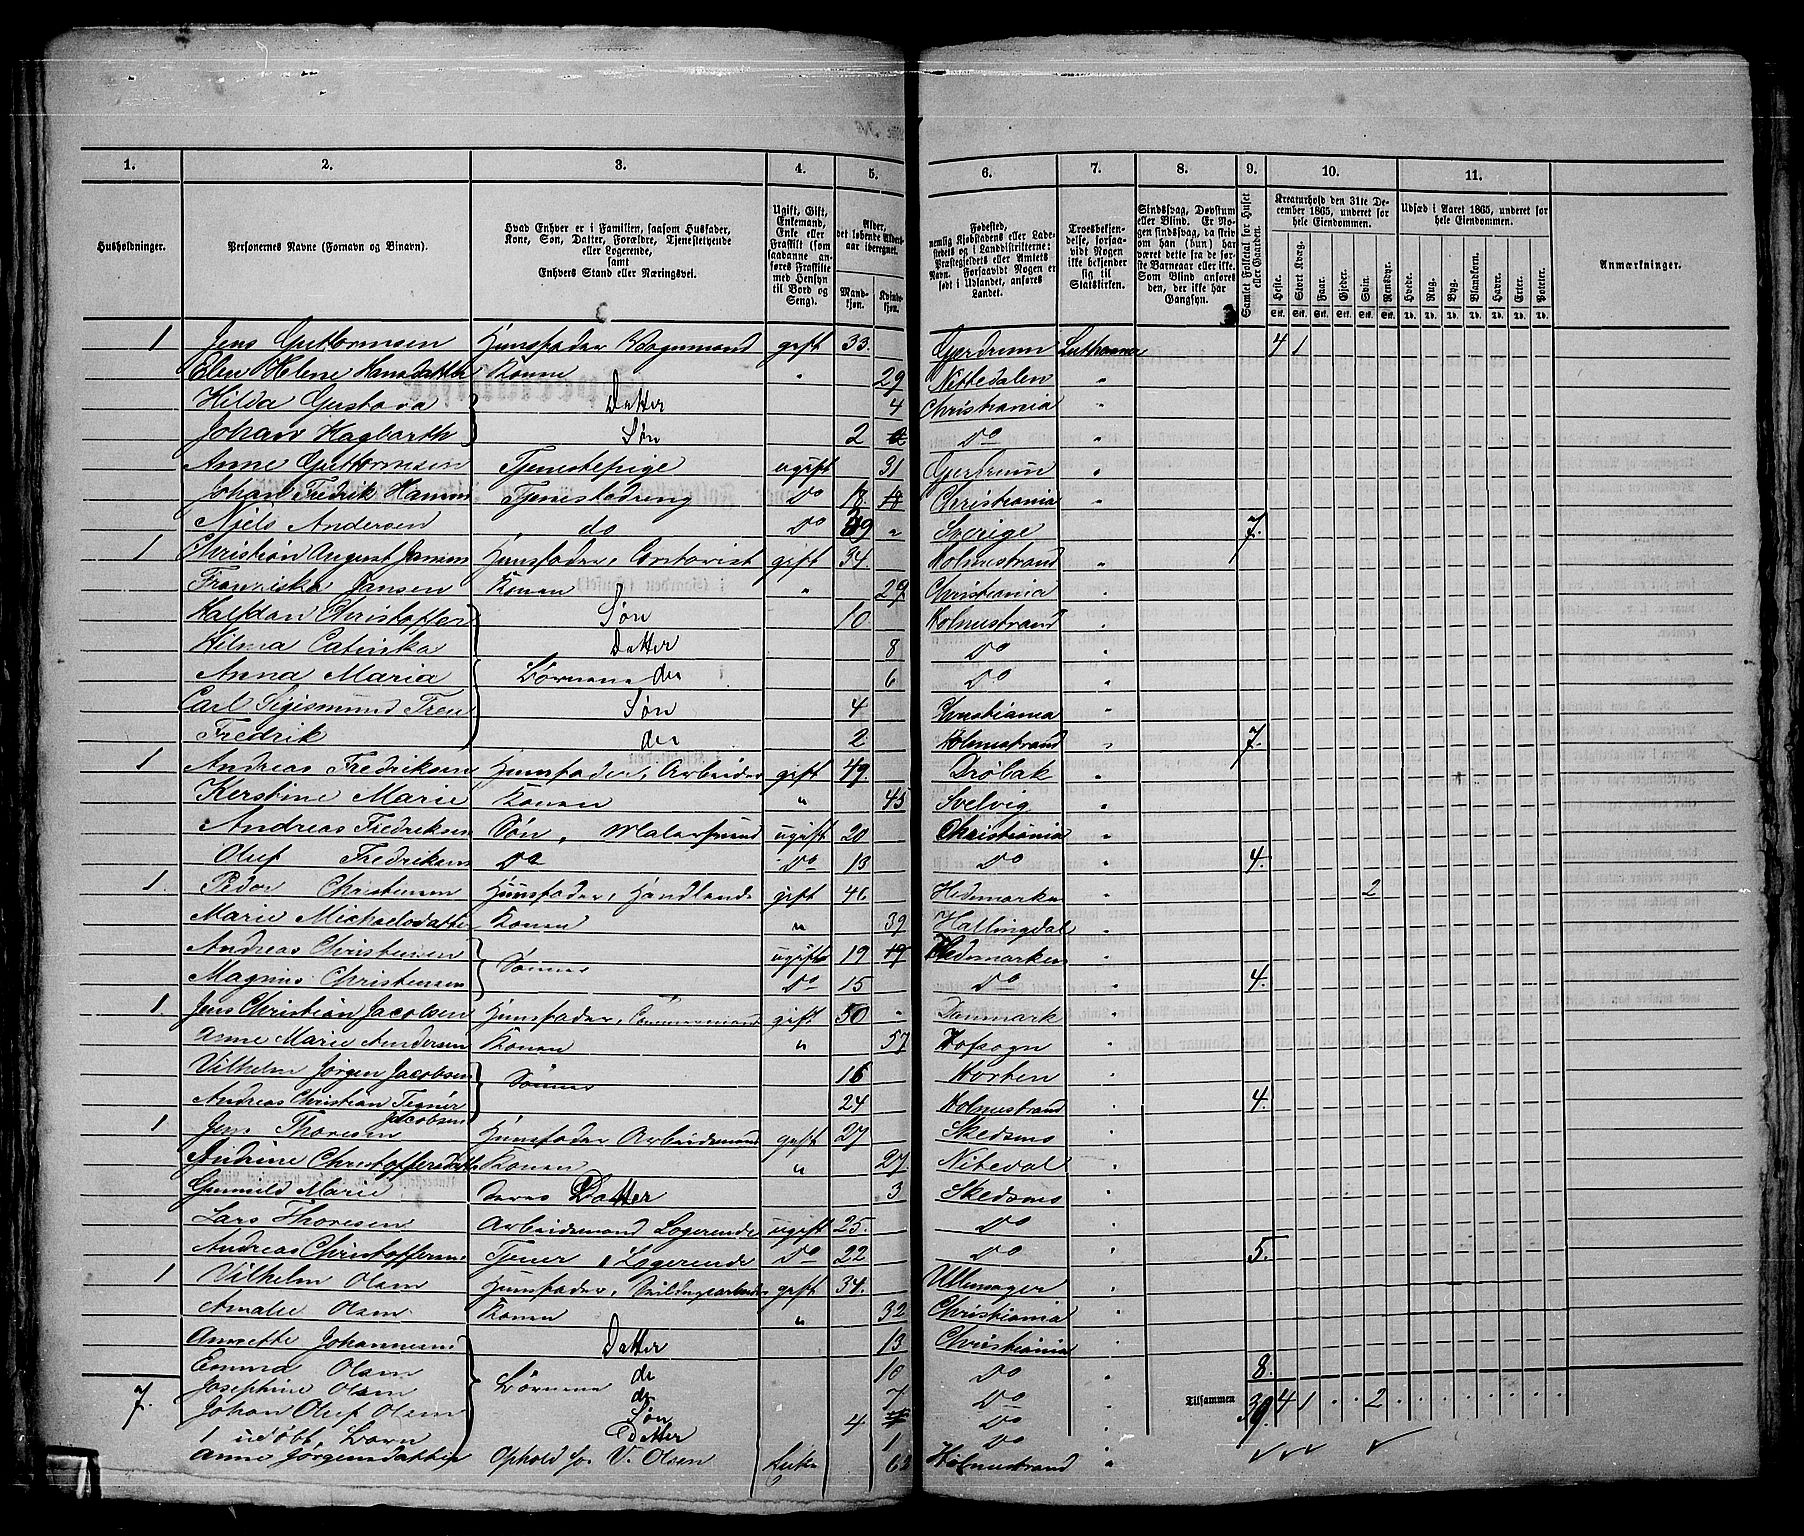 1. 2. 3. 4. 5. 6. 7. 8. 9. 10. 11.
Husholdninger.
Personernes Navne (Fornavn og Binavn).
Hvad Enhver er i Familien, saasom Husfader, Kone, Søn, Datter, Forældre, Tjenestetyende eller Logerende, samt Enhvers Stand eller Næringsvei.
Ugift, Gift, Enkemand, Enke eller Fraskilt (som saadanne anføres Fraskilte med Hensyn til Bord og Seng).
Alder, det løbende Alders-aar iberegnet.
Mandkjøn. Kvindekjøn.
Fødested, nemlig Kjøbstadens eller Ladestedets og i Landdistrikterne: Præstegjeldets eller Amtets Navn. Forsaavidt Nogen er født i Udlandet, anføres Landet.
Troesbekjendelse, forsaavidt Nogen ikke bekjender sig til Statskirken.
Sindssvag, Døvstum eller Blind. Er Nogen sindssvag, da skriv om han (hun) har været dette fra de første Barneaar eller ikke. Som Blind anføres den, der ikke har Gangsyn.
Samlet Folketal for Huset eller Gaarden.
Kreaturhold den 31te December 1865, underet for hele Eiendommen.
Heste. Stort Kvæg. Faar. Gjeder. Svin. Rensdyr.
Udsæd i Aaret 1865, underet for hele Eiendommen.
Hvede. Rug. Byg. Blandkorn. Havre. Erter. Poteter.
Stk. Stk. Stk. Stk. Stk. Stk. Td. Td. Td. Td. Td. Td. Td.
Anmærkninger.
1 Jens Guttormsen Huusfader Vognmand gift 33. Gjerdrum Lutheraner 4 1
Elen Helene Hansdatter Konne " 29 Nittedalen "
Hilda Gustava Datter 4 Christiania "
Johan Hagbarth Søn 2 Do "
Anne Guttormsen Tjenestepige ugift 31 Gjerdrum "
Johan Fredrik Hansen Tjenestedreng Do 18 Christiania "
Niels Andersen do Do 39 " Sverige 7.
1 Christian August Jansen Huusfader, Contorist gift 34. Holmestrand "
Franziska Jansen Konen " 29 Christiania "
Halfdan Christoffer Søn 10 Holmestrand "
Hilma Catinka Datter 8 Do "
Anna Maria Børnene do 6 Do "
Carl Sigismund Søn 4 Christiania "
Fredrik do 2 Holmestrand " 7.
1 Andreas Fredriksen Huusfader, Arbeider gift 49. Drøbak "
Kerstine Marie Konen " 45 Svelvig "
Andreas Fredriksen Søn, Malersvend ugift 20 Christiania "
Oluf Fredriksen Do Do 13 Do " 4.
1 Peder Christensen Huusfader, Handlende gift 46 Hedemarken " 2
Marie Michaelsdatter Konen " 39 Hallingdal "
Andreas Christensen Sønner ugift 19 Hedemarken "
Magnus Christensen Do 15 Do " 4.
1 Jens Christian Jacobsen Huusfader, gift 50 " Danmark "
Anne Marie Andersen Konen " 57 Hofsogn "
Vilhelm Jørgen Jacobsen Sønner 16 Horten "
Andreas Christian Jacobsen 24 Holmestrand " 4.
1 Jens Thoresen Huusfader Arbeidsmand gift 27 Skedsmo "
Andrine Christoffersdatter Konen " 27. Nitedal "
Gunnild Marie deres Datter 3 Skedsmo "
Lars Thoresen Arbeidsmand Logerende ugift 25. Do "
Andreas Christoffersen Tjener Logerende Do 22 Do " 5.
1 Vilhelm Olsen Huusfader, gift 34. Ullensager "
Amalie Olsen Konen " 32 Christiania "
Annette Johannesen Datter 13 Christiania "
Emma Olsen Børnene do 10 Do " 8.
Josephine Olsen do 7 Do "
7. Johan Oluf Olsen Søn 4 Do "
1 udøbt Barn Datter 1 Do "
Anne Jørgensdatter Ophold hos V. Olsen Enke 62 Holmestrand "
Tilsammen 39. 4 1 . . 2 . . . . . . . .